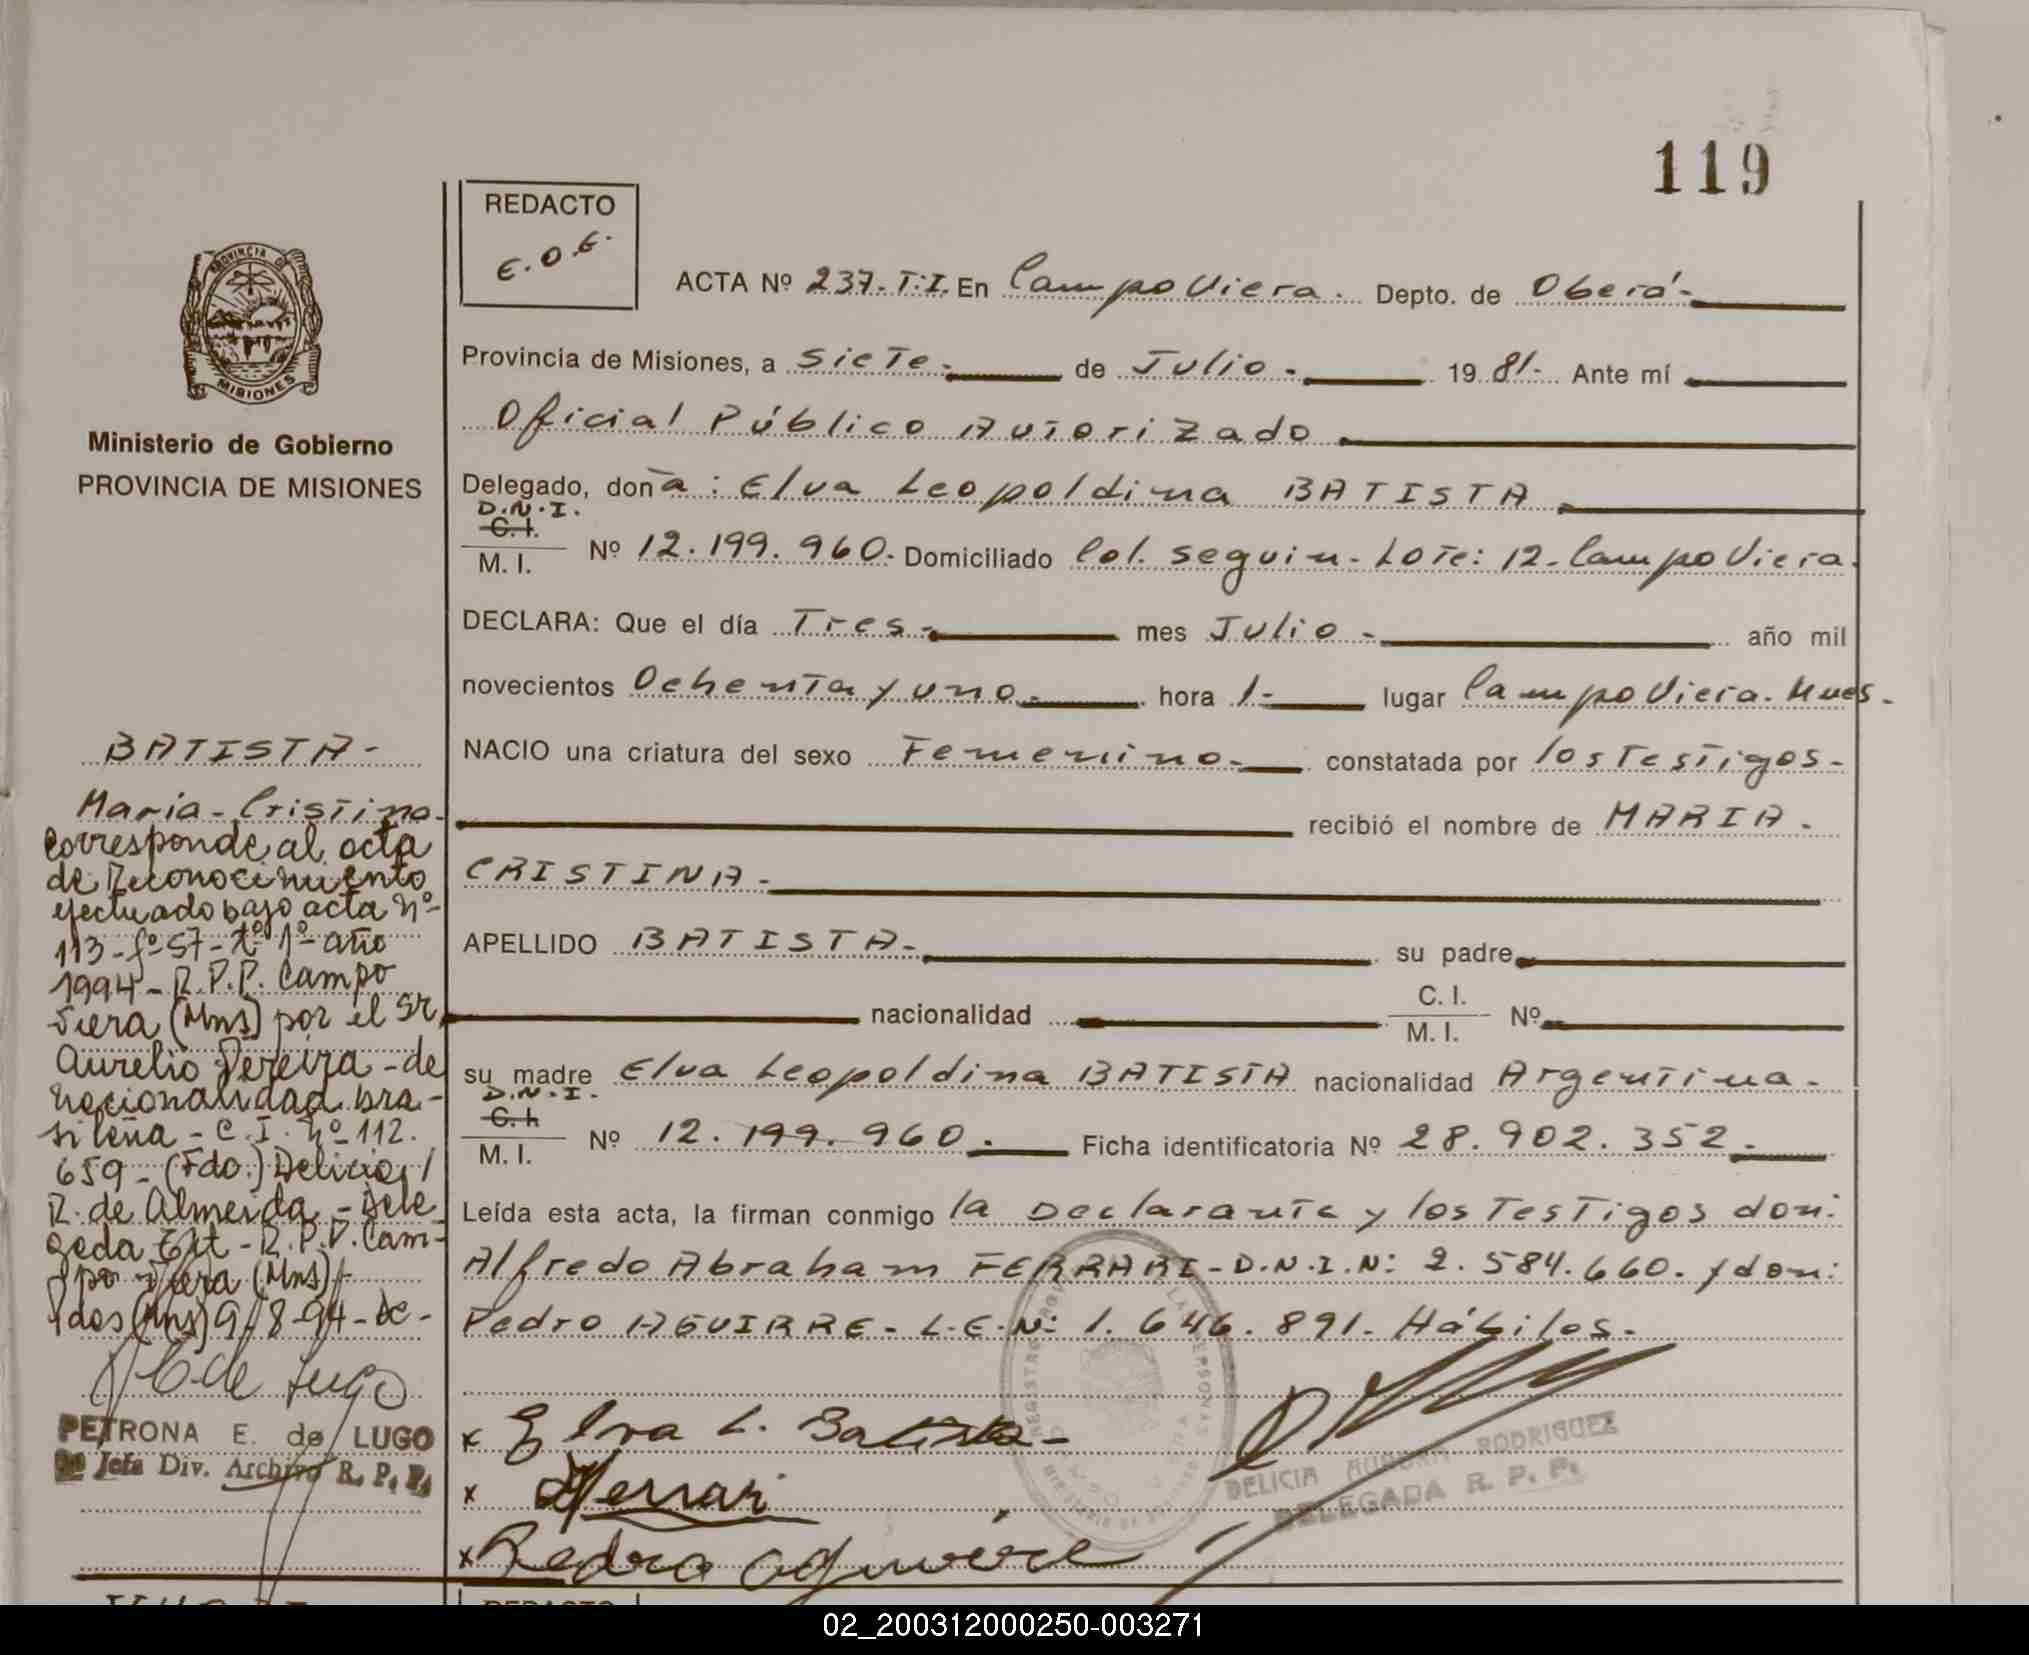 119
REDACTO
E.O.E.
ACTA Nº 237. T: I. En Campo Viera. Depto. de Oberá.-
Provincia de Misiones, a Siete.- de Julio.- 19 81.- Ante mí
Oficial Público Autorizado
Ministerio de Gobierno
PROVINCIA DE MISIONES
Delegado, don a : Elva Leopoldina BATISTA
D.N.I.
C. I.
M. I. Nº 12.199.960.- Domiciliado Col. Seguin. Lote: 12. Campo Viera.
DECLARA: Que el día Tres.- mes Julio.- año mil
novecientos Ochenta y uno.- hora 1.- lugar Campo Viera. Mnes.
NACIO una criatura del sexo Femenino.- constatada por los Testigos.-
recibió el nombre de MARIA.
CRISTINA.-
APELLIDO BATISTA.- su padre
nacionalidad C. I.
M. I. Nº
su madre Elva Leopoldina BATISTA nacionalidad Argentina.-
D.N.I.
C. I.
M. I. Nº 12.199.960.- Ficha identificatoria Nº 28.902.352.-
Leída esta acta, la firman conmigo la Declarante y los Testigos don:
Alfredo Abraham FERRARI- D.N.I.N: 2.584.660. y don:
Pedro AGUIRRE.- L.E.N: 1.646.891. Hábiles.-
x Elva L. Batista-
x Ferrari
x Pedro Aguirre
DELICIA AURORA RODRIGUEZ
DELEGADA R. P. P.
BATISTA-
María-Cristina.
Corresponde al acta
de Reconocimiento
efectuado bajo acta Nº
113-fº 57-tº 1º-año
1994- R.P.P. Campo
Viera (Mns) por el Sr
Aurelio Pereira-de
nacionalidad bra-
sileña- C.I. Nº 112.
659- (Fdo.) Delicia
R. de Almeida- Dele
gada Tit- R.P.P. Cam-
po Viera (Mns)
Pdas (Mns) 9-8-94-
PETRONA E. de LUGO
Jefa Div. Archivo R. P. P.
REDACTO
02_200312000250-003271